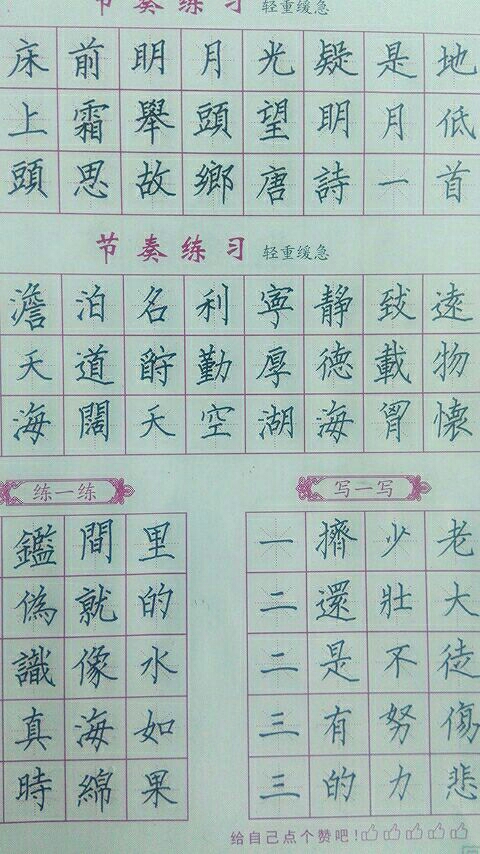 节奏练习 轻重缓急
床前明月光疑是地
上霜舉頭望明月低
頭思故鄉唐詩一首
节奏练习 轻重缓急
澹泊名利寧靜致遠
天道酧勤厚德載物
海闊天空湖海胷懷
练一练
鑑偽識真時
間就像海綿
里的水如果
写一写
一二二三三
擠還是有的
少壯不努力
老大徒傷悲
给自己点个赞吧!